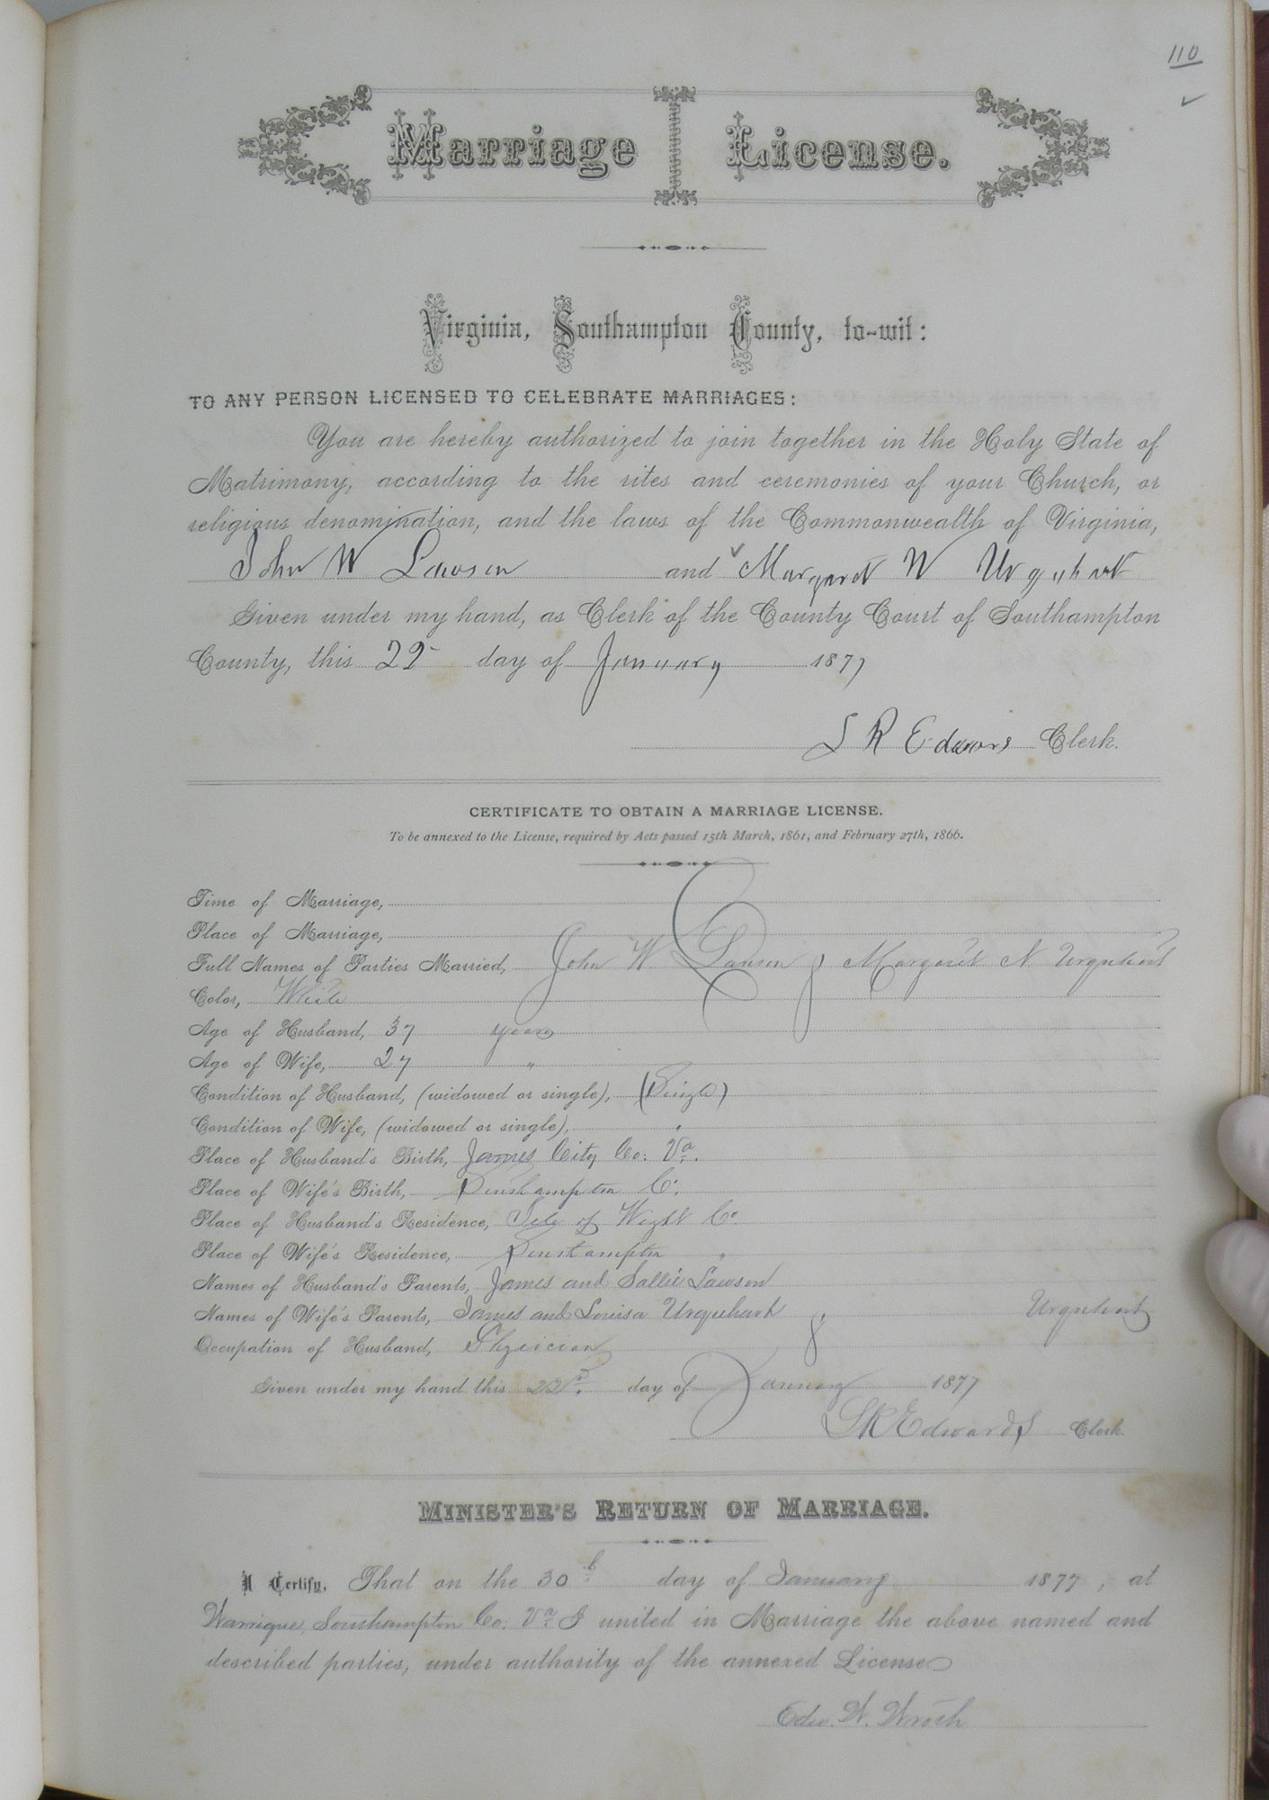 110
Marriage License.
Virginia, Southampton County, to-wit:
TO ANY PERSON LICENSED TO CELEBRATE MARRIAGES:
You are hereby authorized to join together in the Holy State of
Matrimony, according to the rites and ceremonies of your Church, or
religious denomination, and the laws of the Commonwealth of Virginia,
John W Lawson and Margaret N Urquhart
Given under my hand, as Clerk of the County Court of Southampton
County, this 22 day of January 1877
L R Edwards Clerk.
CERTIFICATE TO OBTAIN A MARRIAGE LICENSE.
To be annexed to the License, required by Acts passed 15th March, 1861, and February 27th, 1866.
Time of Marriage,
Place of Marriage,
Full Names of Parties Married, John W. Lawson & Margaret N Urquhart
Color, White
Age of Husband, 37 years
Age of Wife, 27 "
Condition of Husband, (widowed or single), (Single)
Condition of Wife, (widowed or single), "
Place of Husband's Birth, James City Co: Va.
Place of Wife's Birth, Southampton Co:
Place of Husband's Residence, Isle of Wight Co.
Place of Wife's Residence, Southampton "
Names of Husband's Parents, James and Sallie Lawson
Names of Wife's Parents, James and Louisa Urquhart & Urquhart
Occupation of Husband, Physician
Given under my hand this 22nd. day of January 1877
L R Edwards Clerk.
MINISTER'S RETURN OF MARRIAGE.
I Certify, That on the 30th day of January 1877, at
Warrique, Southampton Co: Va I united in Marriage the above named and
described parties, under authority of the annexed License
Edw. W. Wroth